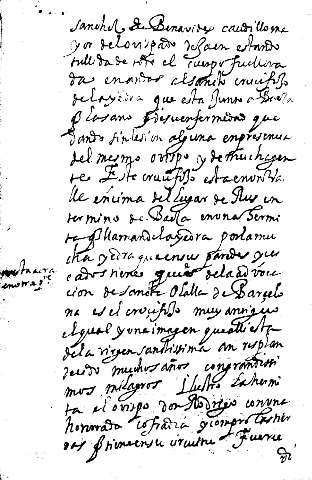 sanchez de Benavides caudillo ma
yor del obispado de Jaen estando
tullida de todo el cuerpo fue lleva
da en andas al santo crucifixo
de la yedra que esta junto a Baeça
y la sano de su enfermedad que
dando sin lesion alguna en presencia
del mesmo obispo y de mucha gen
te Este crucifixo esta en una
lle encima del lugar de Rus en
termino de Baeça en una hermi
ta q llaman de la yedra por la mu
cha yedra que en sus paredes y ve
cados tiene que es de la advoca
cion de sancta Olalla de Barcelo
na es el crucifixo muy antiguo
el qual y una imagen que alli esta
de la virgen sanctissima an resplan
decido muchos años con grandissi
mos milagros Ilustro la hermi
ta el obispo don Rodrigo con una
honrrada cofradia y compro las tier
ras q tiene en su circuitu Fueron